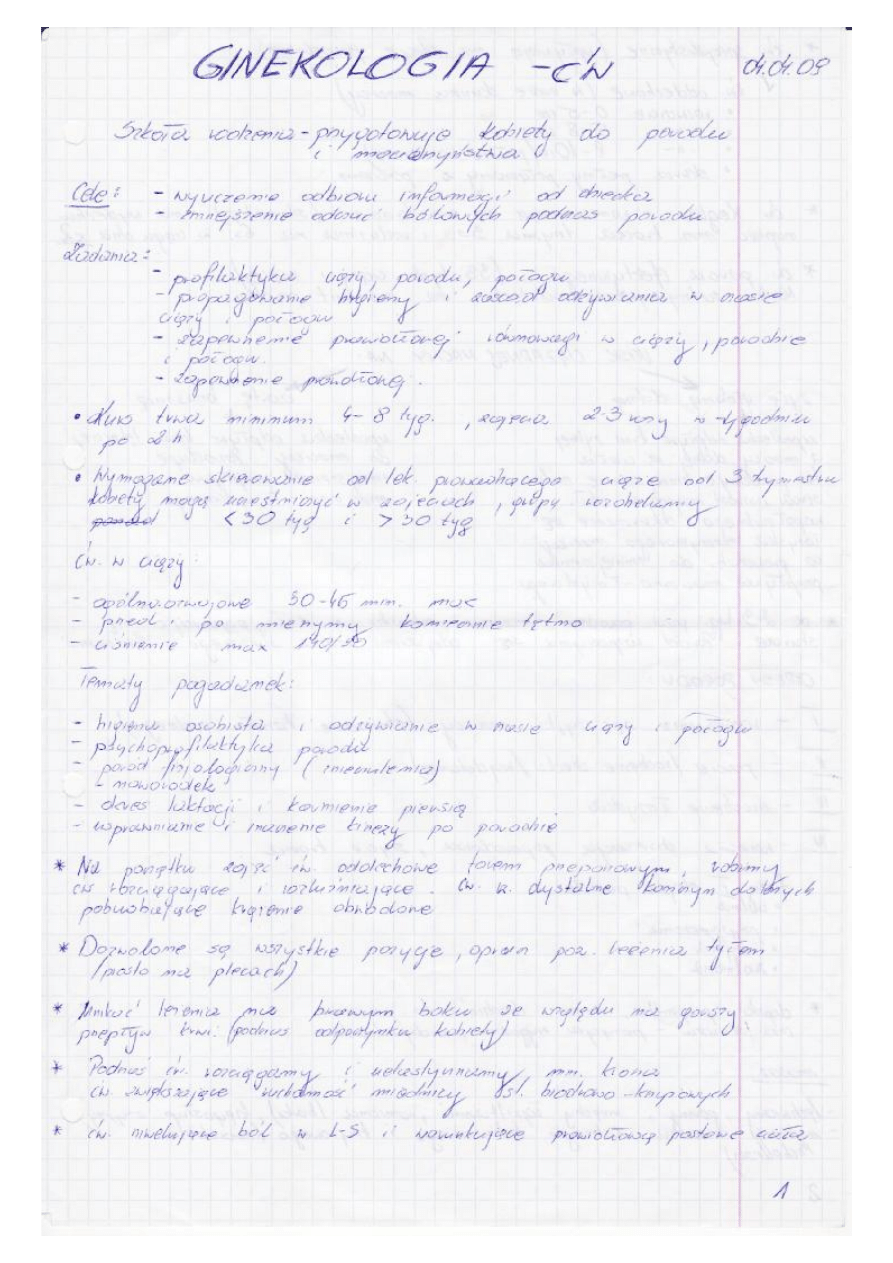 GINEKOLOGIA - ĆW 04.04.09
Szkoła rodzenia - przygotowuje kobiety do porodu
i macierzyństwa
Cele: - wyuczenie odbioru informacji od dziecka
- mniejszenie odczuć bólowych podczas porodu
Zadania:
- profilaktyka ciąży, porodu, połogu
- propagowanie higieny i zasad odżywiania w czasie
ciąży i połogu
- zapewnienie prawidłowej równowagi w ciąży, porodzie
i połogu.
- zapewnienie prawidłowej.
• Kurs trwa minimum 4-8 tyg., zajęcia 2-3 razy w tygodniu
po 2 h
• Wymagane skierowanie od lek. prowadzącego ciążę od 3 trymestru
kobiety mogą uczestniczyć w zajęciach, grupy rozdzielamy
<30 tyg i >30 tyg
Ćw. w ciąży:
- ogólnorozwojowe 30-45 min. max
- przed i po mierzymy koniecznie tętno
- ciśnienie max 140/90
Tematy pogadanek:
- higiena osobista i odżywianie w czasie ciąży i połogu
- psychoprofilaktyka porodu
- poród fizjologiczny (znieczulenia)
- noworodek
- okres laktacji i karmienie piersią
- usprawnianie i ćwiczenie kinezy po porodzie
* Na początku zajęć ćw. oddechowe torem przeponowym, robimy
ćw rozciągające i rozluźniające. ćw. cz. dystalne kończyn dolnych
pobudzające krążenie obwodowe
* Dozwolone są wszystkie pozycje, oprócz poz. leżenia tyłem
(płasko na plecach)
* Unikać leżenia na prawym boku ze względu na gorszy
przepływ krwi. (podczas odpoczynku kobiety)
* Podczas ćw. rozciągamy i uelastyczniamy mm. krocza
ćw. zwiększające ruchomość miednicy i st. biodrowo-krzyżowych
* ćw. niwelujące ból w L-S i warunkujące prawidłową postawę ciała
1